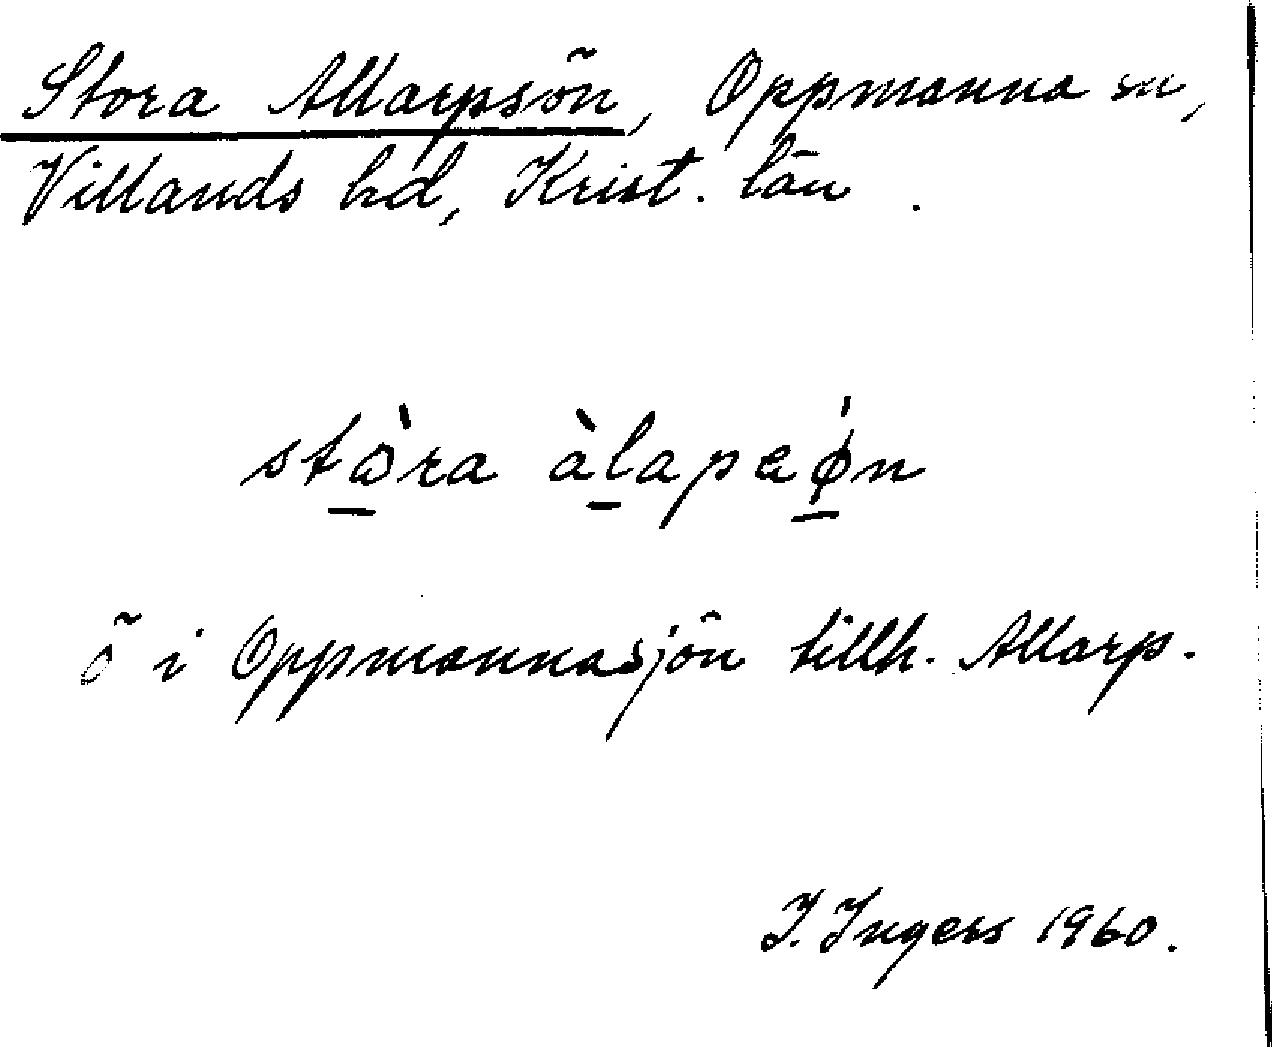 Stora Allarpsön, Oppmanna sn,
Villands hd, Krist. län.
stòra àlapsǿn
ö i Oppmannasjön tillh. Allarp.
I. Ingers 1960.